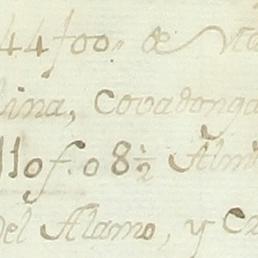 44f00 „ de
ina, Covadonga
110f. 08½ Alm
del Alamo, y C